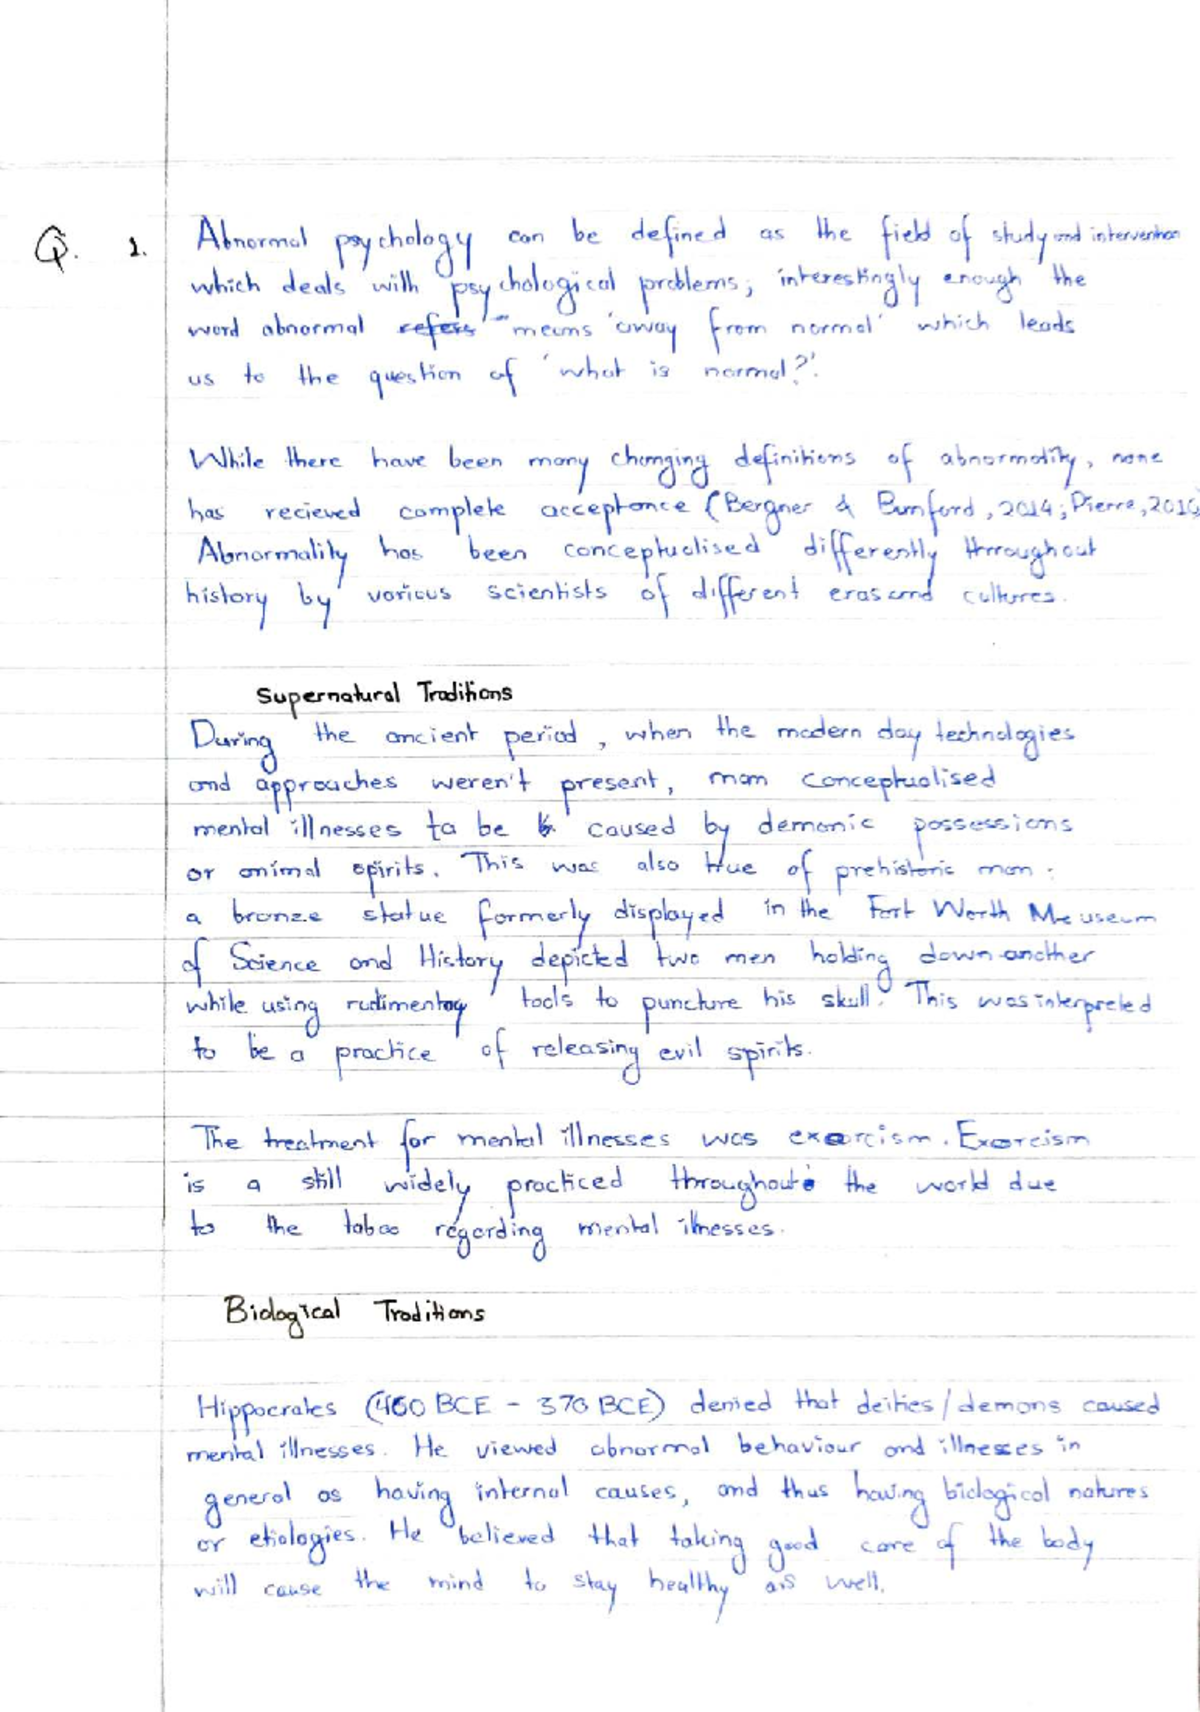 Q. 1. Abnormal psychology can be defined as the field of study and intervention
which deals with psychological problems; interestingly enough the
word abnormal refers means 'away from normal' which leads
us to the question of 'what is normal?'.
While there have been many changing definitions of abnormality, none
has recieved complete acceptance (Bergner & Bunford, 2014; Pierre, 2010
Abnormality has been conceptualised differently throughout
history by various scientists of different eras and cultures.
Supernatural Traditions
During the ancient period, when the modern day technologies
and approaches weren't present, man conceptualised
mental illnesses to be caused by demonic possessions
or animal spirits. This was also true of prehistoric man.
a bronze statue formerly displayed in the Fort Worth Meuseum
of Science and History depicted two men holding down another
while using rudimentary tools to puncture his skull. This was interpreted
to be a practice of releasing evil spirits.
The treatment for mental illnesses was exorcism. Exorcism
is a still widely practiced throughout the world due
to the taboo regarding mental illnesses.
Biological Traditions
Hippocrates (460 BCE - 370 BCE) denied that deities/demons caused
mental illnesses. He viewed abnormal behaviour and illnesses in
general as having internal causes, and thus having biological natures
or etiologies. He believed that taking good care of the body
will cause the mind to stay healthy as well.